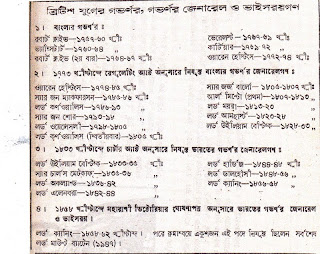 ব্রিটিশ যুগের গভর্নর, গভর্নর জেনারেল ও ভাইসরয়গণ
১। বাংলার গভর্নর :
রবার্ট ক্লাইভ—১৭৫৭-৬০ খ্রীঃ ভেরেলস্ট—১৭৬৭-৬৯ খ্রীঃ
ভ্যান্সিটার্ট—১৭৬০-৬৪ " কার্টিয়ার—১৭৬৯-৭২ "
রবার্ট ক্লাইভ (২য় বার)—১৭৬৫-৬৭ খ্রীঃ ওয়ারেন হেস্টিংস—১৭৭২-৭৪ খ্রীঃ
২। ১৭৭৩ খ্রীষ্টাব্দে রেগুলেটিং অ্যাক্ট অনুসারে নিযুক্ত বাংলার গভর্নর জেনারেলগণ :
ওয়ারেন হেস্টিংস—১৭৭৪-৮৫ খ্রীঃ স্যার জর্জ বার্লো—১৮০৫-১৮০৭ খ্রীঃ
স্যার জন ম্যাকফারসন—১৭৮৫-৮৬ " আর্ল মিন্টো (প্রথম)—১৮০৭-১৮১৩ "
লর্ড কর্ণওয়ালিস—১৭৮৬-৯৩ " লর্ড ময়রা—১৮১৩-২৩ "
স্যার জন শোর—১৭৯৩-৯৮ " লর্ড আমহার্স্ট—১৮২৩-২৮ "
লর্ড ওয়েলেসলী—১৭৯৮-১৮০৫ " লর্ড উইলিয়াম বেন্টিঙ্ক—১৮২৮-৩৩ "
লর্ড কর্ণওয়ালিস (দ্বিতীয়বার)—১৮০৫ খ্রীঃ
৩। ১৮৩৩ খ্রীষ্টাব্দে চার্টার অ্যাক্ট অনুসারে নিযুক্ত ভারতের গভর্নর জেনারেলগণ :
লর্ড উইলিয়াম বেন্টিঙ্ক—১৮৩৩-৩৫ খ্রীঃ লর্ড হার্ডিঞ্জ—১৮৪৪-৪৮ খ্রীঃ
স্যার চার্লস মেটকাফ—১৮৩৫-৩৬ " লর্ড ডালহৌসী—১৮৪৮-৫৬ "
লর্ড অকল্যান্ড—১৮৩৬-৪২ " লর্ড ক্যানিং—১৮৫৬-৫৮ "
লর্ড এলেনবরা—১৮৪২-৪৪ "
৪। ১৮৫৮ খ্রীষ্টাব্দে মহারাণী ভিক্টোরিয়ার ঘোষণাপত্র অনুসারে ভারতের গভর্নর জেনারেল
ও ভাইসরয়।
লর্ড ক্যানিং—১৮৫৮-৬২ খ্রীষ্টাব্দ। পরে ক্রমান্বয়ে একুশজন এই পদে নিযুক্ত ছিলেন সর্বশেষ
লর্ড মাউন্ট ব্যাটেন (১৯৪৭)।